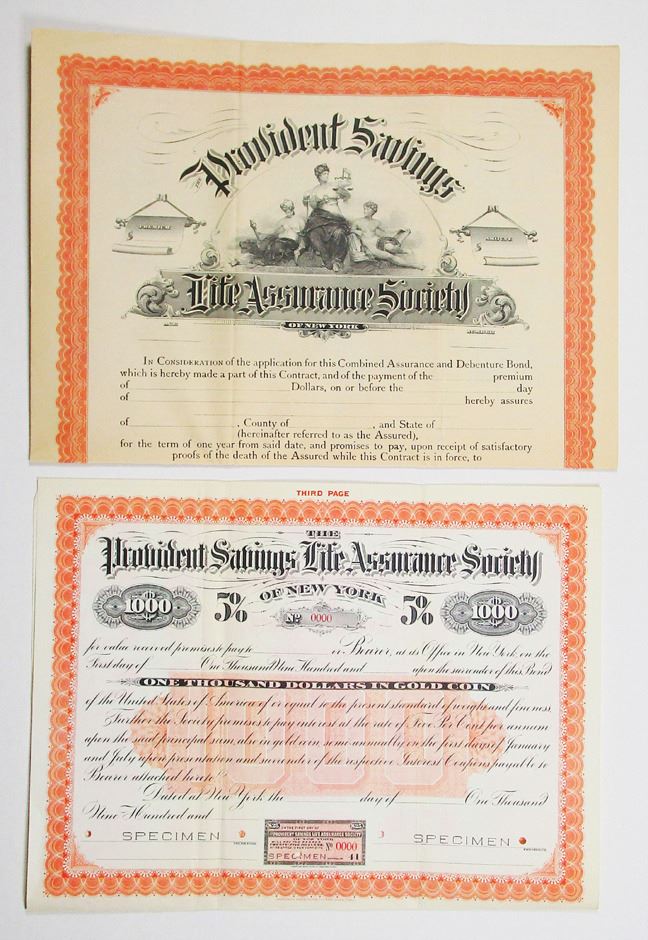 THE
Provident Savings
PREMIUM
AMOUNT
Life Assurance Society
OF NEW YORK
AGE
NUMBER
IN CONSIDERATION of the application for this Combined Assurance and Debenture Bond,
which is hereby made a part of this Contract, and of the payment of the premium
of Dollars, on or before the day
of hereby assures
of , County of , and State of
(hereinafter referred to as the Assured),
for the term of one year from said date, and promises to pay, upon receipt of satisfactory
proofs of the death of the Assured while this Contract is in force, to
THIRD PAGE
THE
Provident Savings Life Assurance Society
OF NEW YORK
1000 5% No 0000 5% 1000
for value received promises to pay to or Bearer, at its Office in New York on the
First day of One Thousand Nine Hundred and upon the surrender of this Bond
ONE THOUSAND DOLLARS IN GOLD COIN
of the United States of America of or equal to the present standard of weight and fineness.
Further the Society promises to pay interest at the rate of Five Per Cent per annum
upon the said principal sum, also in gold coin, semi-annually on the first days of January
and July upon presentation and surrender of the respective Interest Coupons payable to
Bearer attached hereto
Dated at New York the day of One Thousand
Nine Hundred and
ON THE FIRST DAY OF
PROVIDENT SAVINGS LIFE ASSURANCE SOCIETY
OF NEW YORK
No 0000
SPECIMEN 41
SPECIMEN
SPECIMEN